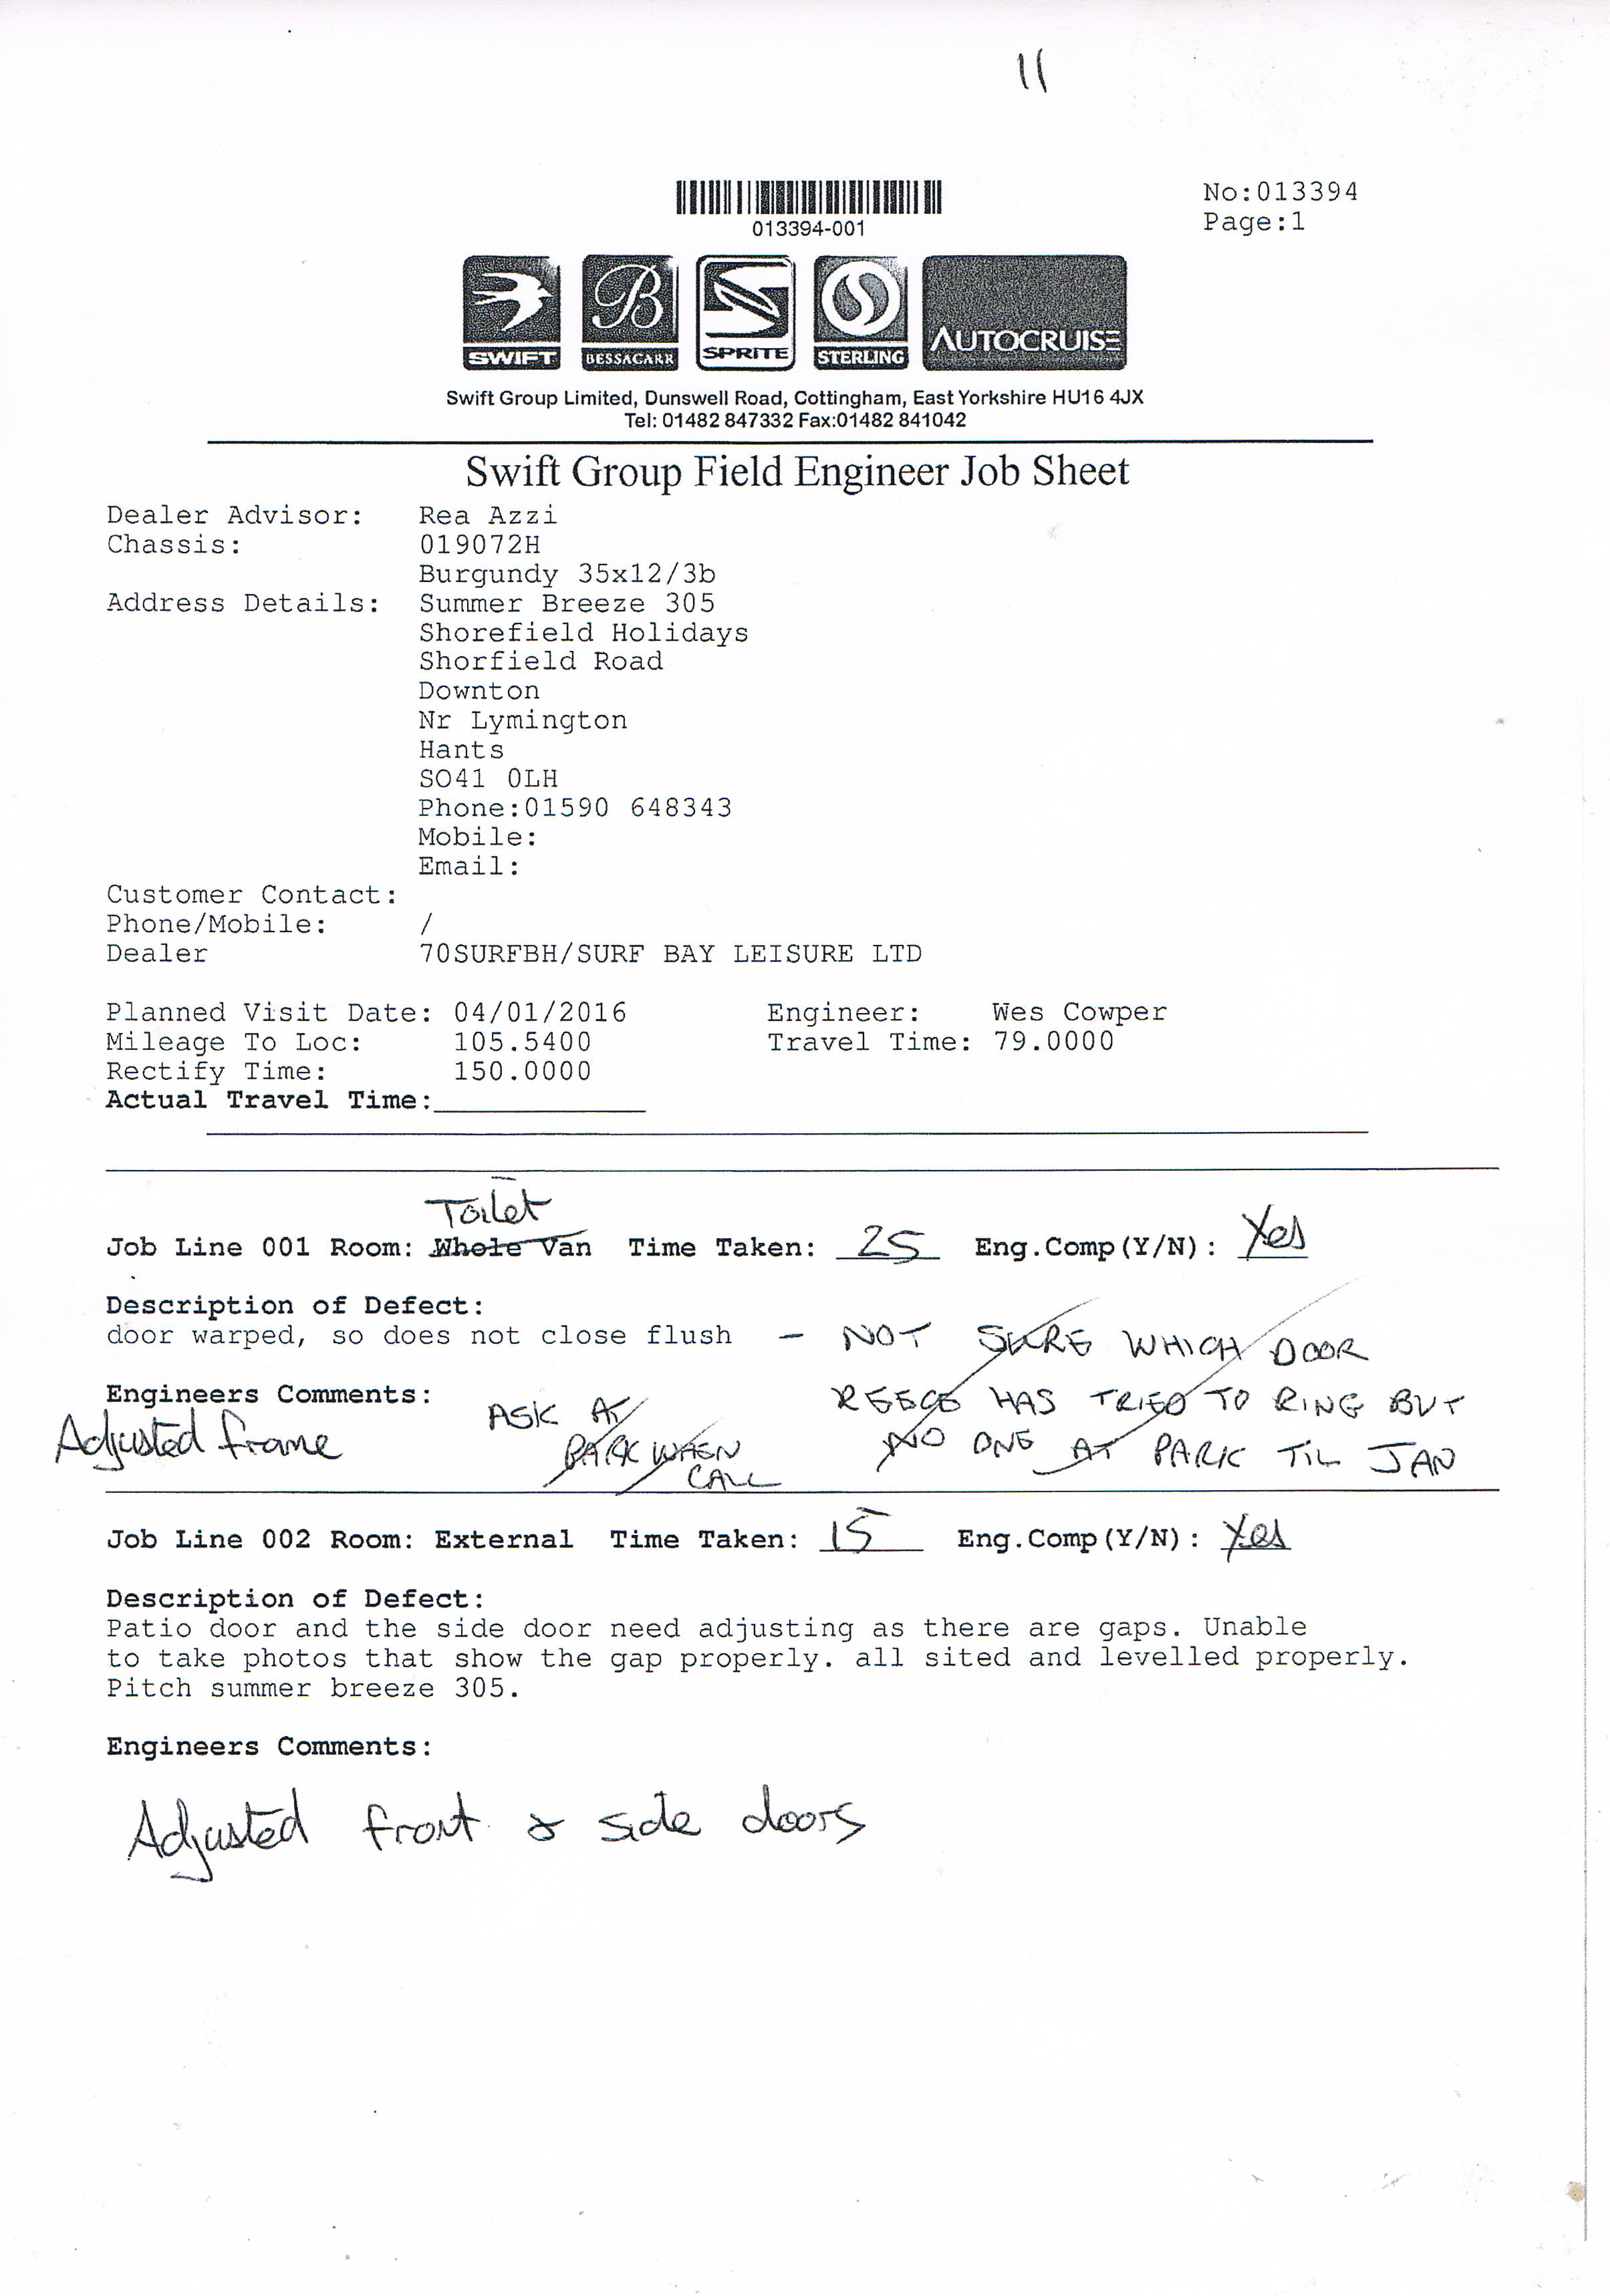 11
No:013394
Page:1
013394-001
SWIFT
B
BESSACARR
SPRITE
STERLING
AUTOCRUISE
Swift Group Limited, Dunswell Road, Cottingham, East Yorkshire HU16 4JX
Tel: 01482 847332 Fax:01482 841042
Swift Group Field Engineer Job Sheet
Dealer Advisor: Rea Azzi
Chassis: 019072H
Burgundy 35x12/3b
Address Details: Summer Breeze 305
Shorefield Holidays
Shorfield Road
Downton
Nr Lymington
Hants
SO41 0LH
Phone:01590 648343
Mobile:
Email:
Customer Contact:
Phone/Mobile: /
Dealer 70SURFBH/SURF BAY LEISURE LTD
Planned Visit Date: 04/01/2016 Engineer: Wes Cowper
Mileage To Loc: 105.5400 Travel Time: 79.0000
Rectify Time: 150.0000
Actual Travel Time:
Toilet
Job Line 001 Room: Whole Van Time Taken: 25 Eng.Comp(Y/N): Yes
Description of Defect:
door warped, so does not close flush - NOT SURE WHICH DOOR
Engineers Comments: ASK AT REECE HAS TRIED TO RING BUT
Adjusted frame PARK WHEN NO ONE AT PARK TIL JAN
CALL
Job Line 002 Room: External Time Taken: 15 Eng.Comp(Y/N): Yes
Description of Defect:
Patio door and the side door need adjusting as there are gaps. Unable
to take photos that show the gap properly. all sited and levelled properly.
Pitch summer breeze 305.
Engineers Comments:
Adjusted front & side doors